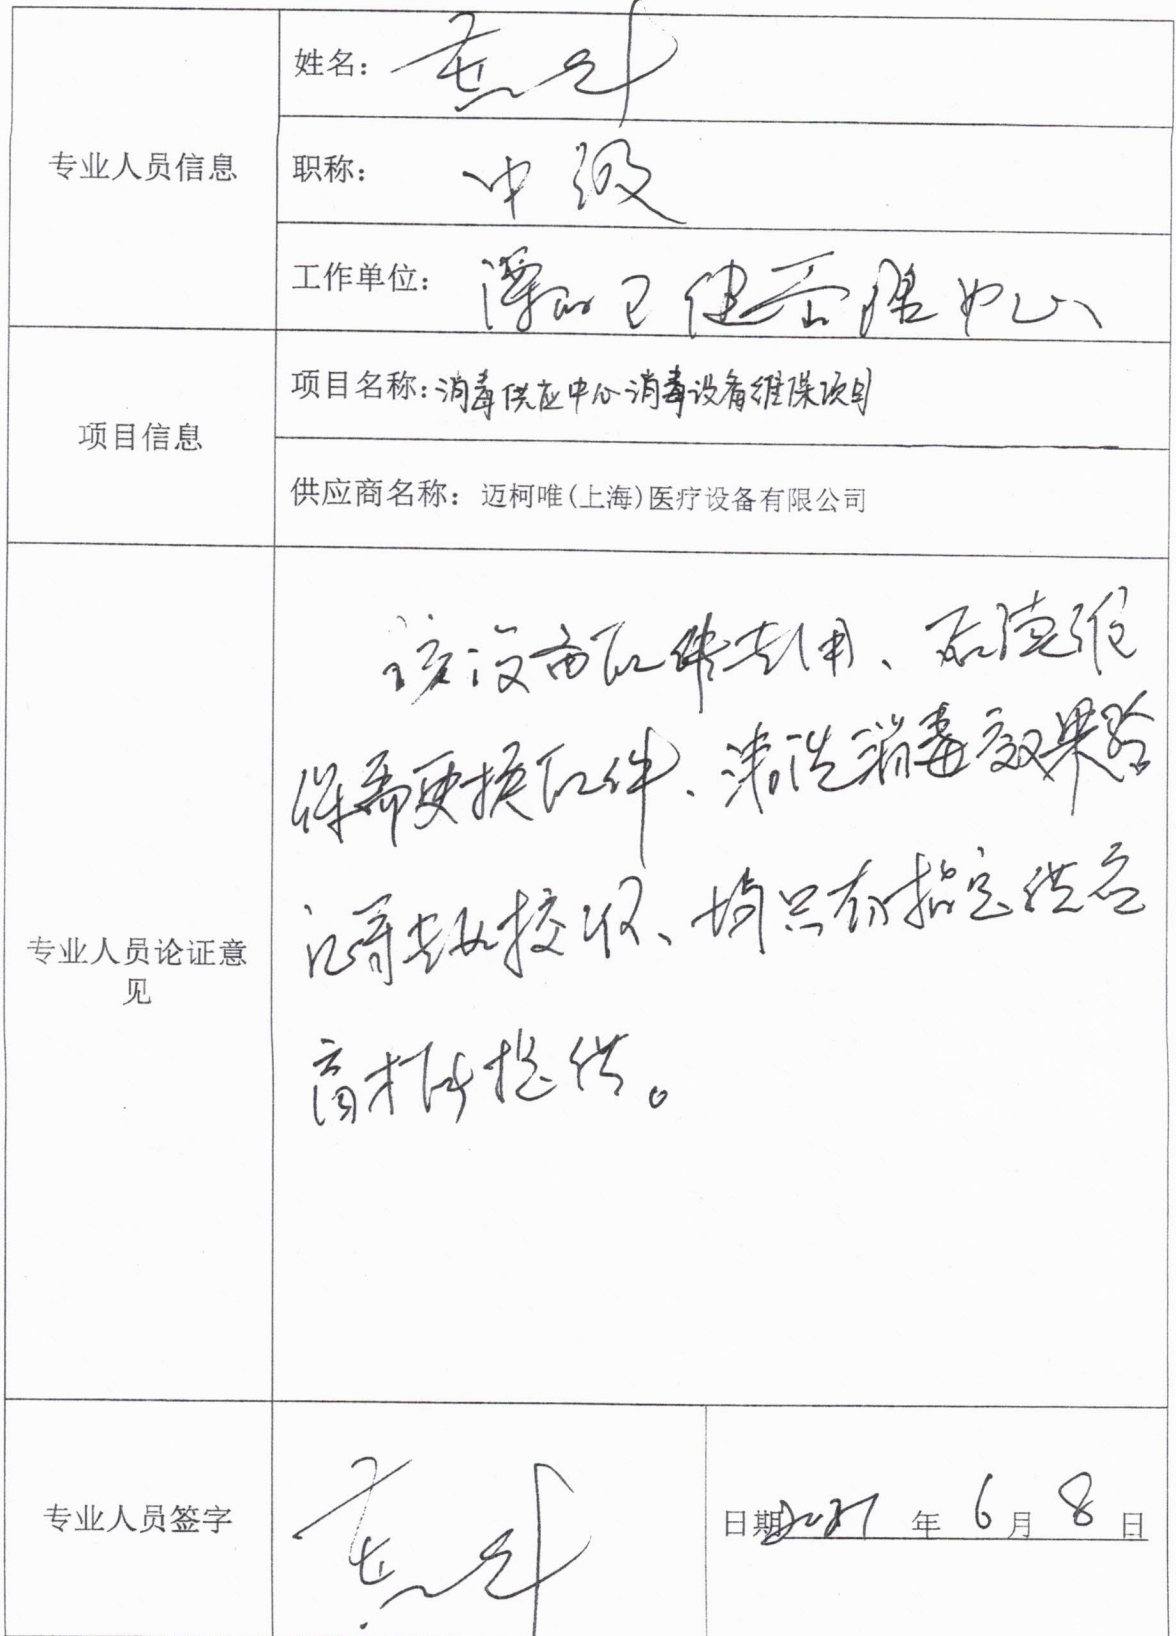 专业人员信息
姓名：
职称： 中级
工作单位： 中心
项目信息
项目名称：消毒供应中心消毒设备维保项目
供应商名称：迈柯唯(上海)医疗设备有限公司
专业人员论证意
见
该设备配件专用、后续维
保需更换配件、清洗消毒效果验
证等 均只有指定供应
商才能提供。
专业人员签字
日期 年 6 月 8 日